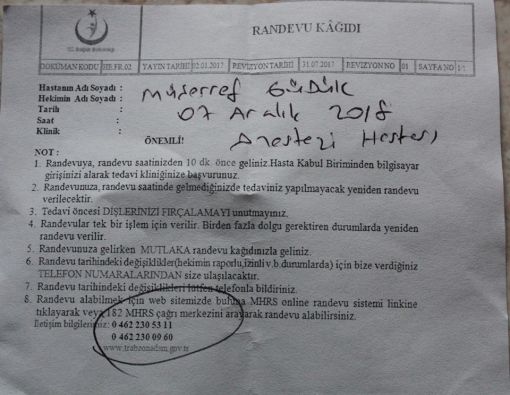 T.C. Sağlık Bakanlığı
RANDEVU KÂĞIDI
DOKÜMAN KODU HB.FR.02 YAYIN TARİHİ 02.01.2017 REVİZYON TARİHİ 31.07.2017 REVİZYON NO 01 SAYFA NO 1/1
Hastanın Adı Soyadı : Müşerref GÜDÜK
Hekimin Adı Soyadı :
Tarih : 07 Aralık 2018
Saat :
Klinik : Anestezi Hastası
ÖNEMLİ!
NOT :
1. Randevuya, randevu saatinizden 10 dk. önce geliniz.Hasta Kabul Biriminden bilgisayar
girişinizi alarak tedavi kliniğinize başvurunuz.
2. Randevunuza, randevu saatinde gelmediğinizde tedaviniz yapılmayacak yeniden randevu
verilecektir.
3. Tedavi öncesi DİŞLERİNİZİ FIRÇALAMAYI unutmayınız.
4. Randevular tek bir işlem için verilir. Birden fazla dolgu gerektiren durumlarda yeniden
randevu verilir.
5. Randevunuza gelirken MUTLAKA randevu kağıdınızla geliniz.
6. Randevu tarihindeki değişiklikler(hekimin raporlu,izinli v.b.durumlarda) için bize verdiğiniz
TELEFON NUMARALARINDAN size ulaşılacaktır.
7. Randevu tarihindeki değişiklikleri lütfen telefonla bildiriniz.
8. Randevu alabilmek için web sitemizde buluna MHRS online randevu sistemi linkine
tıklayarak veya 182 MHRS çağrı merkezini arayarak randevu alabilirsiniz.
İletişim bilgilerimiz: 0 462 230 53 11
0 462 230 09 60
www.trabzonadsm.gov.tr